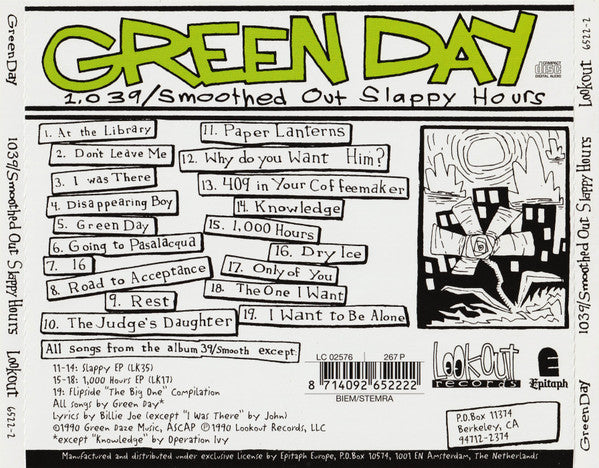 GREEN DAY
COMPACT
disc
DIGITAL AUDIO
1,039/Smoothed Out Slappy Hours
1. At the Library
2. Don't Leave Me
3. I was There
4. Disappearing Boy
5. Green Day
6. Going to Pasalacqua
7. 16
8. Road to Acceptance
9. Rest
10. The Judge's Daughter
11. Paper Lanterns
12. Why do you Want Him?
13. 409 in Your Coffeemaker
14. Knowledge
15. 1,000 Hours
16. Dry Ice
17. Only of You
18. The One I Want
19. I Want to Be Alone
All songs from the album 39/Smooth except:
11-14: Slappy EP (LK35)
15-18: 1,000 Hours EP (LK17)
19: Flipside "The Big One" Compilation
All songs by Green Day*
Lyrics by Billie Joe (except "I Was There" by John)
©1990 Green Daze Music, ASCAP ℗1990 Lookout Records, LLC
*except "Knowledge" by Operation Ivy
LC 02576
267 P
8 714092 652222
BIEM/STEMRA
Lookout
records
E
Epitaph
P.O.Box 11374
Berkeley, CA
94712-2374
Manufactured and distributed under exclusive license by Epitaph Europe, P.O.Box 10574, 1001 EN Amsterdam, The Netherlands
Green Day 1039/Smoothed Out Slappy Hours Lookout 6522-2
Green Day 1039/Smoothed Out Slappy Hours Lookout 6522-2